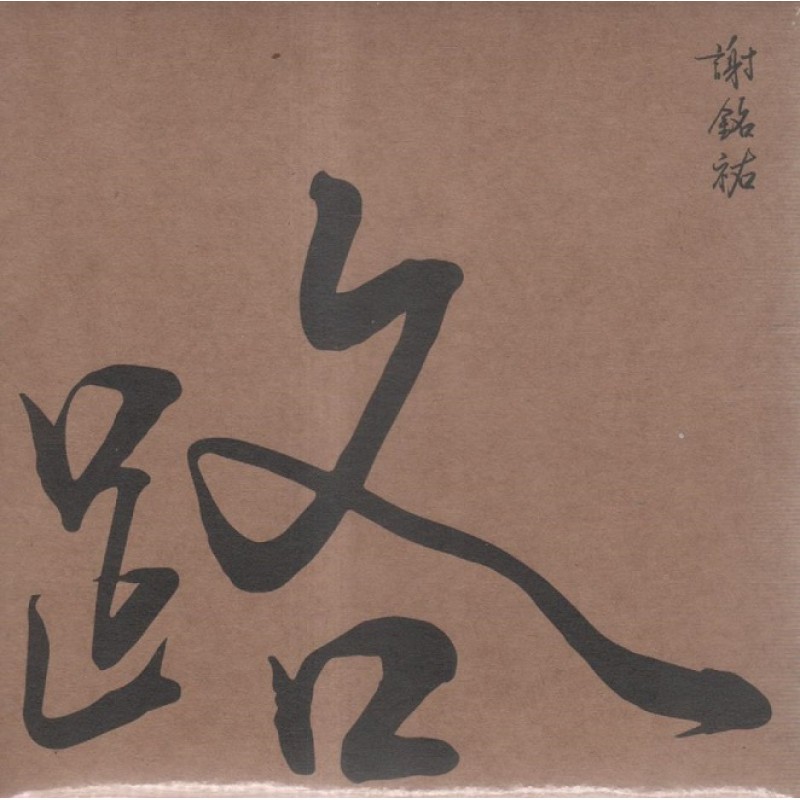 謝銘祐
路